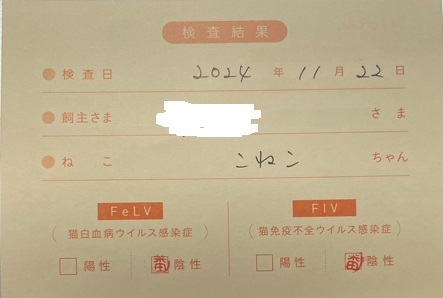 検査結果
検査日 2024年11月22日
飼主さま さま
ねこ こねこ ちゃん
FeLV FIV
(猫白血病ウイルス感染症) (猫免疫不全ウイルス感染症)
陽性 陰性 陽性 陰性